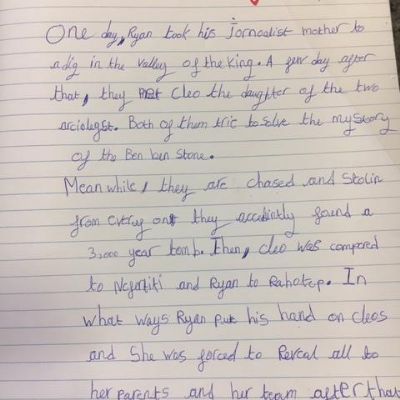 One day, Ryan took his jornoalist mother to
a dig in the valley of the king. A few day after
that, they met Cleo the daughter of the two
arciologst. Both of them tric to solve the mystory
of the Ben ben stone.
Mean while, they are chased and stolin
from every one they accidintly found a
3,000 year tomb. Then, cleo was compared
to Nefertiti and Ryan to Rahotep. In
what ways Ryan put his hand on cleos
and she was forced to Reveal all to
her parents and her team after that